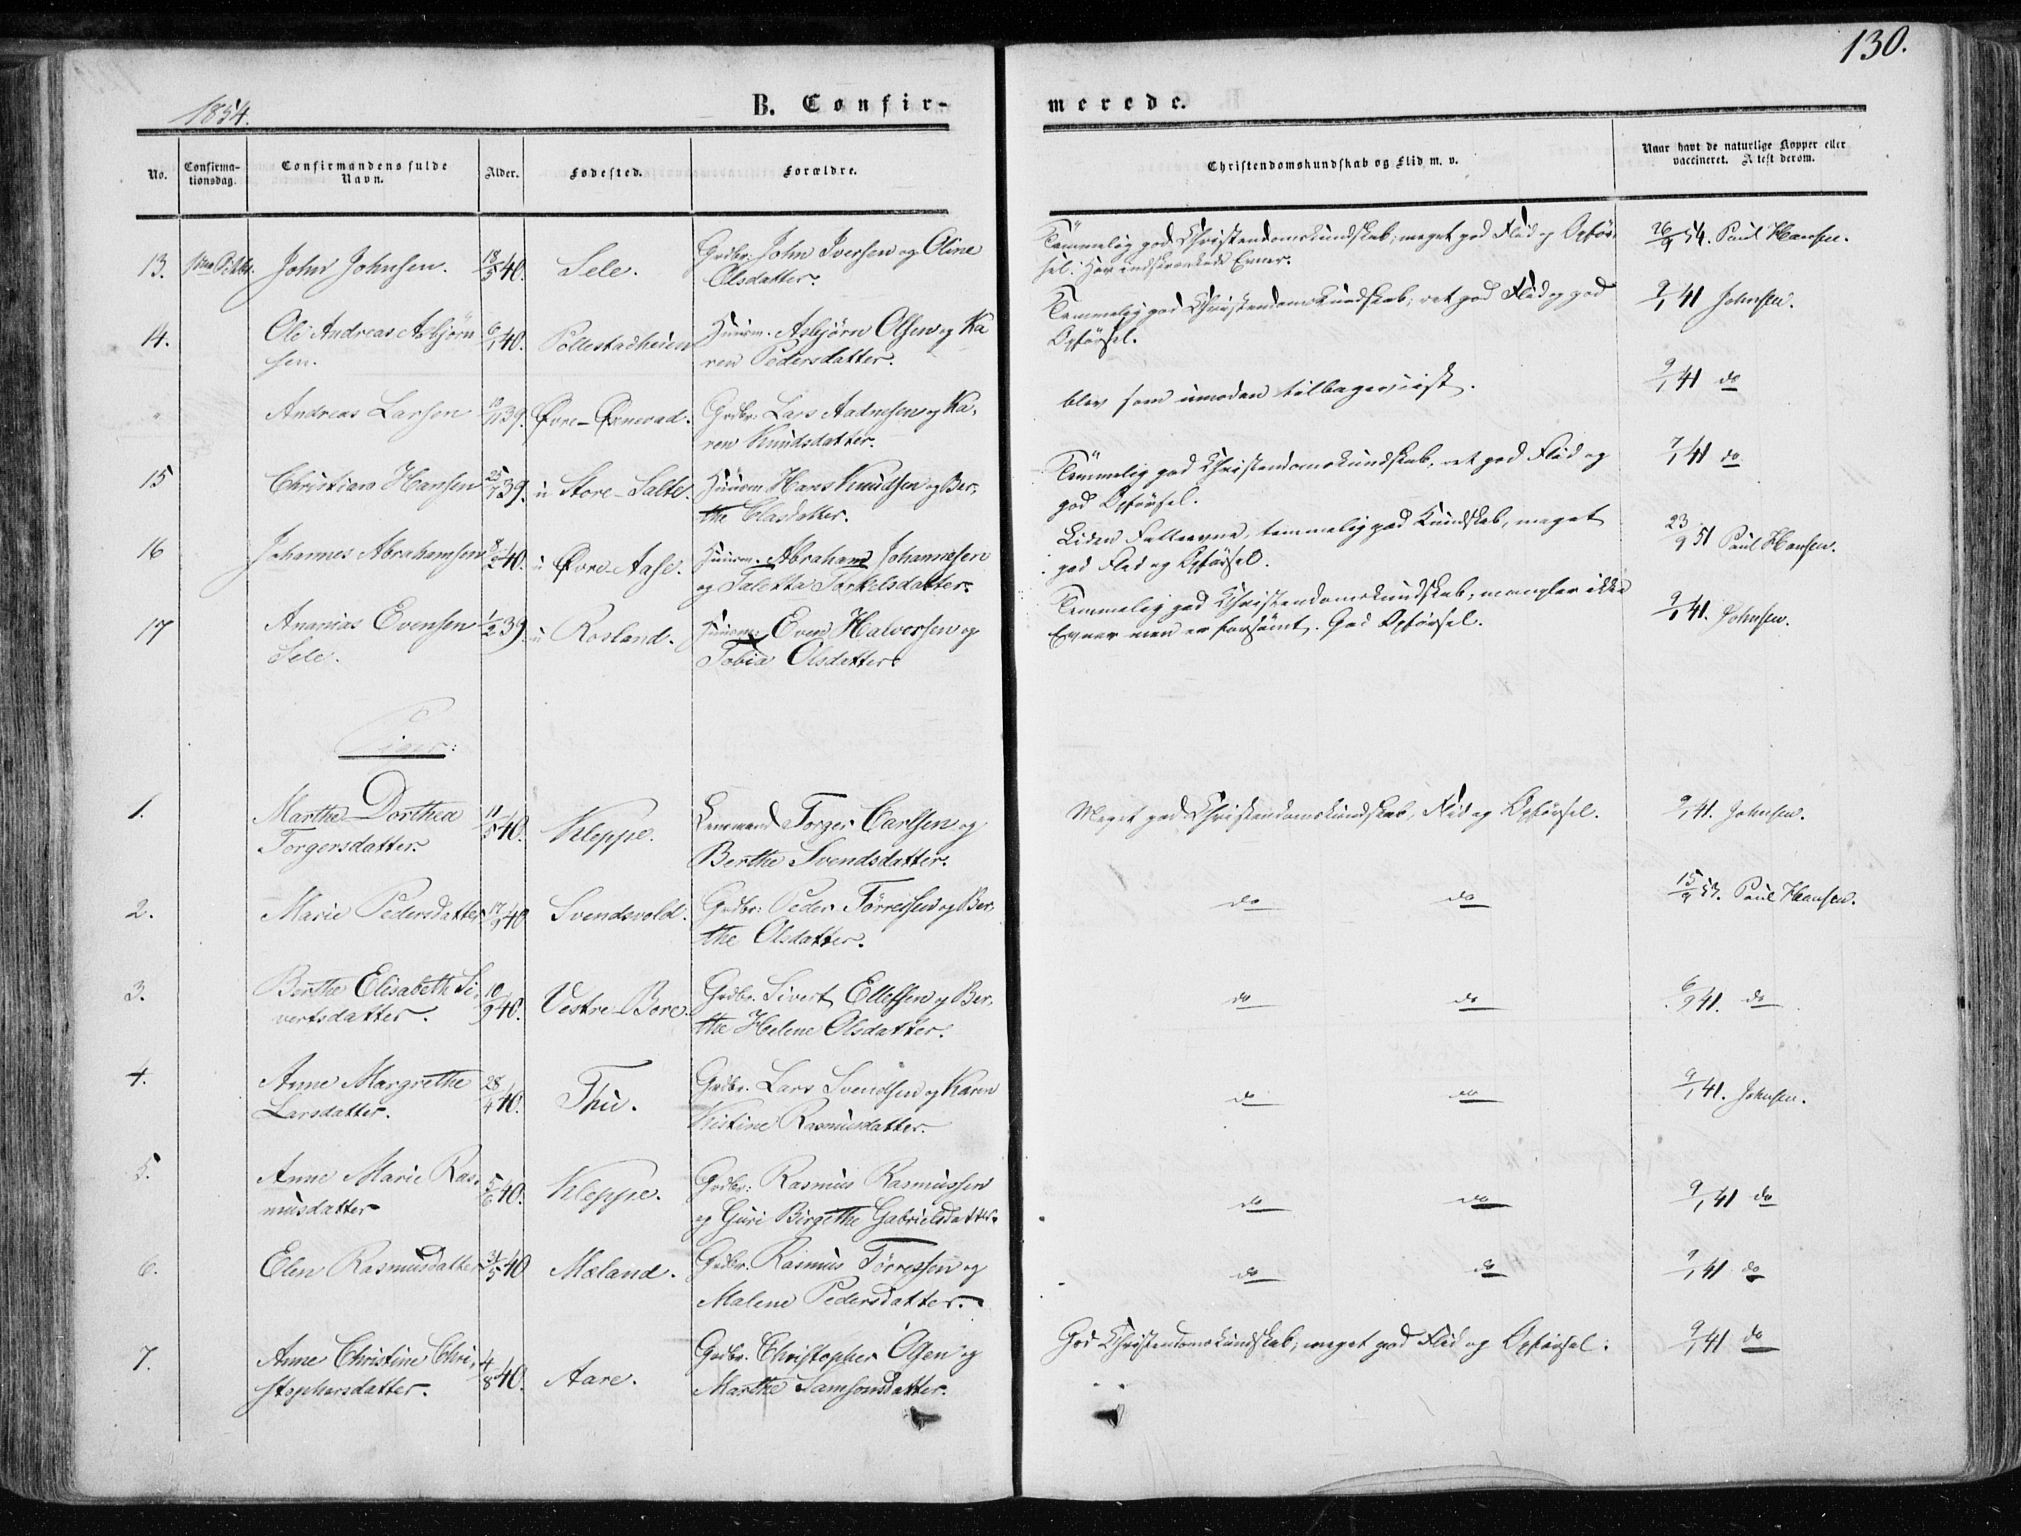 130.
1854.
B. Confir-
merede.
No.
Confirma-
tionsdag.
Confirmandens fulde
Navn.
Alder.
Fødested.
Forældre.
Christendomskundskab og Flid m. v.
Naar havt de naturlige Kopper eller
vaccineret. Attest derom.
13. John Johnsen. 18/5 40. Sele. Grdbr. John Iversen og Oline
Olsdatter.
Temmelig god Christendomskundskab; meget god Flid og Opför-
sel. Har indskrænkede Evner.
26/9 54. Paul Hansen.
14. Ole Andreas Asbjørn
sen.
6/1 40. Pollestadheien Huusm. Asbjørn Olsen og Ka
ren Pedersdatter.
Temmelig god Christendomskundskab; ret god Flid og god
Opförsel.
9/1 41 Johnsen.
" Andreas Larsen 39. Øvre-Øxnevad. Grdbr. Lars Aadnesen og Ka-
ren Knudsdatter.
blev som umoden tilbageviist.
9/1 41 do
15 Christian Hansen 39. u Store-Salte. Huusm. Hans Knudsen og Ber-
the Clasdatter.
Temmelig god Christendomskundskab, ret god Flid og
god Opförsel.
7/1 41 do
16 Johannes Abrahamsen 8/2 40. u Øvre-Aase. Huusm. Abraham Johannesen
og Taletta Torkelsdatter.
Liden Fatteevne, temmelig god Kundskab, meget
god Flid og Opförsel.
23/9 51 Paul Hansen.
17 Ananias Evensen
Sele.
1/2 39. u Rosland. Huusm. Even Halvorsen og
Tobia Olsdatter
Temmelig god Christendomskundskab; mangler ikke
Evner men er forsömt. God Opförsel.
9/1 41. Johnsen.
Piger:
1. Marthe Dorthea
Torgersdatter.
11/5 40. Kleppe. Torger Carlsen og
Berthe Svendsdatter.
Meget god Christendomskundskab, Flid og Opförsel.
9/1 41. Johnsen.
2. Marie Pedersdatter 40 Svendsvold. Grdbr. Peder Tørresen og Ber-
the Olsdatter.
do do
15/9 53. Paul Hansen.
3. Berthe Elisabeth Si-
vertsdatter.
10/9 40. Vestre-Bore. Grdbr. Sivert Ellefsen og Ber-
the Helene Olsdatter.
do do
6/9 41. do
4. Anne Margrethe
Larsdatter.
28/4 40. Thu. Grdbr. Lars Svendsen og Karen
Kistine Rasmusdatter.
do do
9/1 41. Johnsen.
5. Anne Marie Ras-
musdatter
5/6 40. Kleppe. Grdbr. Rasmus Rasmussen
og Guri Birgethe Gabrielsdatter.
do do
9/1 41 do
6. Elen Rasmusdatter 31/5 40 Mæland. Grdbr. Rasmus Tørressen og
Malene Pedersdatter.
do do
9/1 41 do
7. Anne Christine Chri-
stophersdatter.
4/8 40. Aare. Grdbr. Christopher Olsen og
Marthe Samsonsdatter.
God Christendomskundskab; meget god Flid og Opförsel.
9/1 41 do